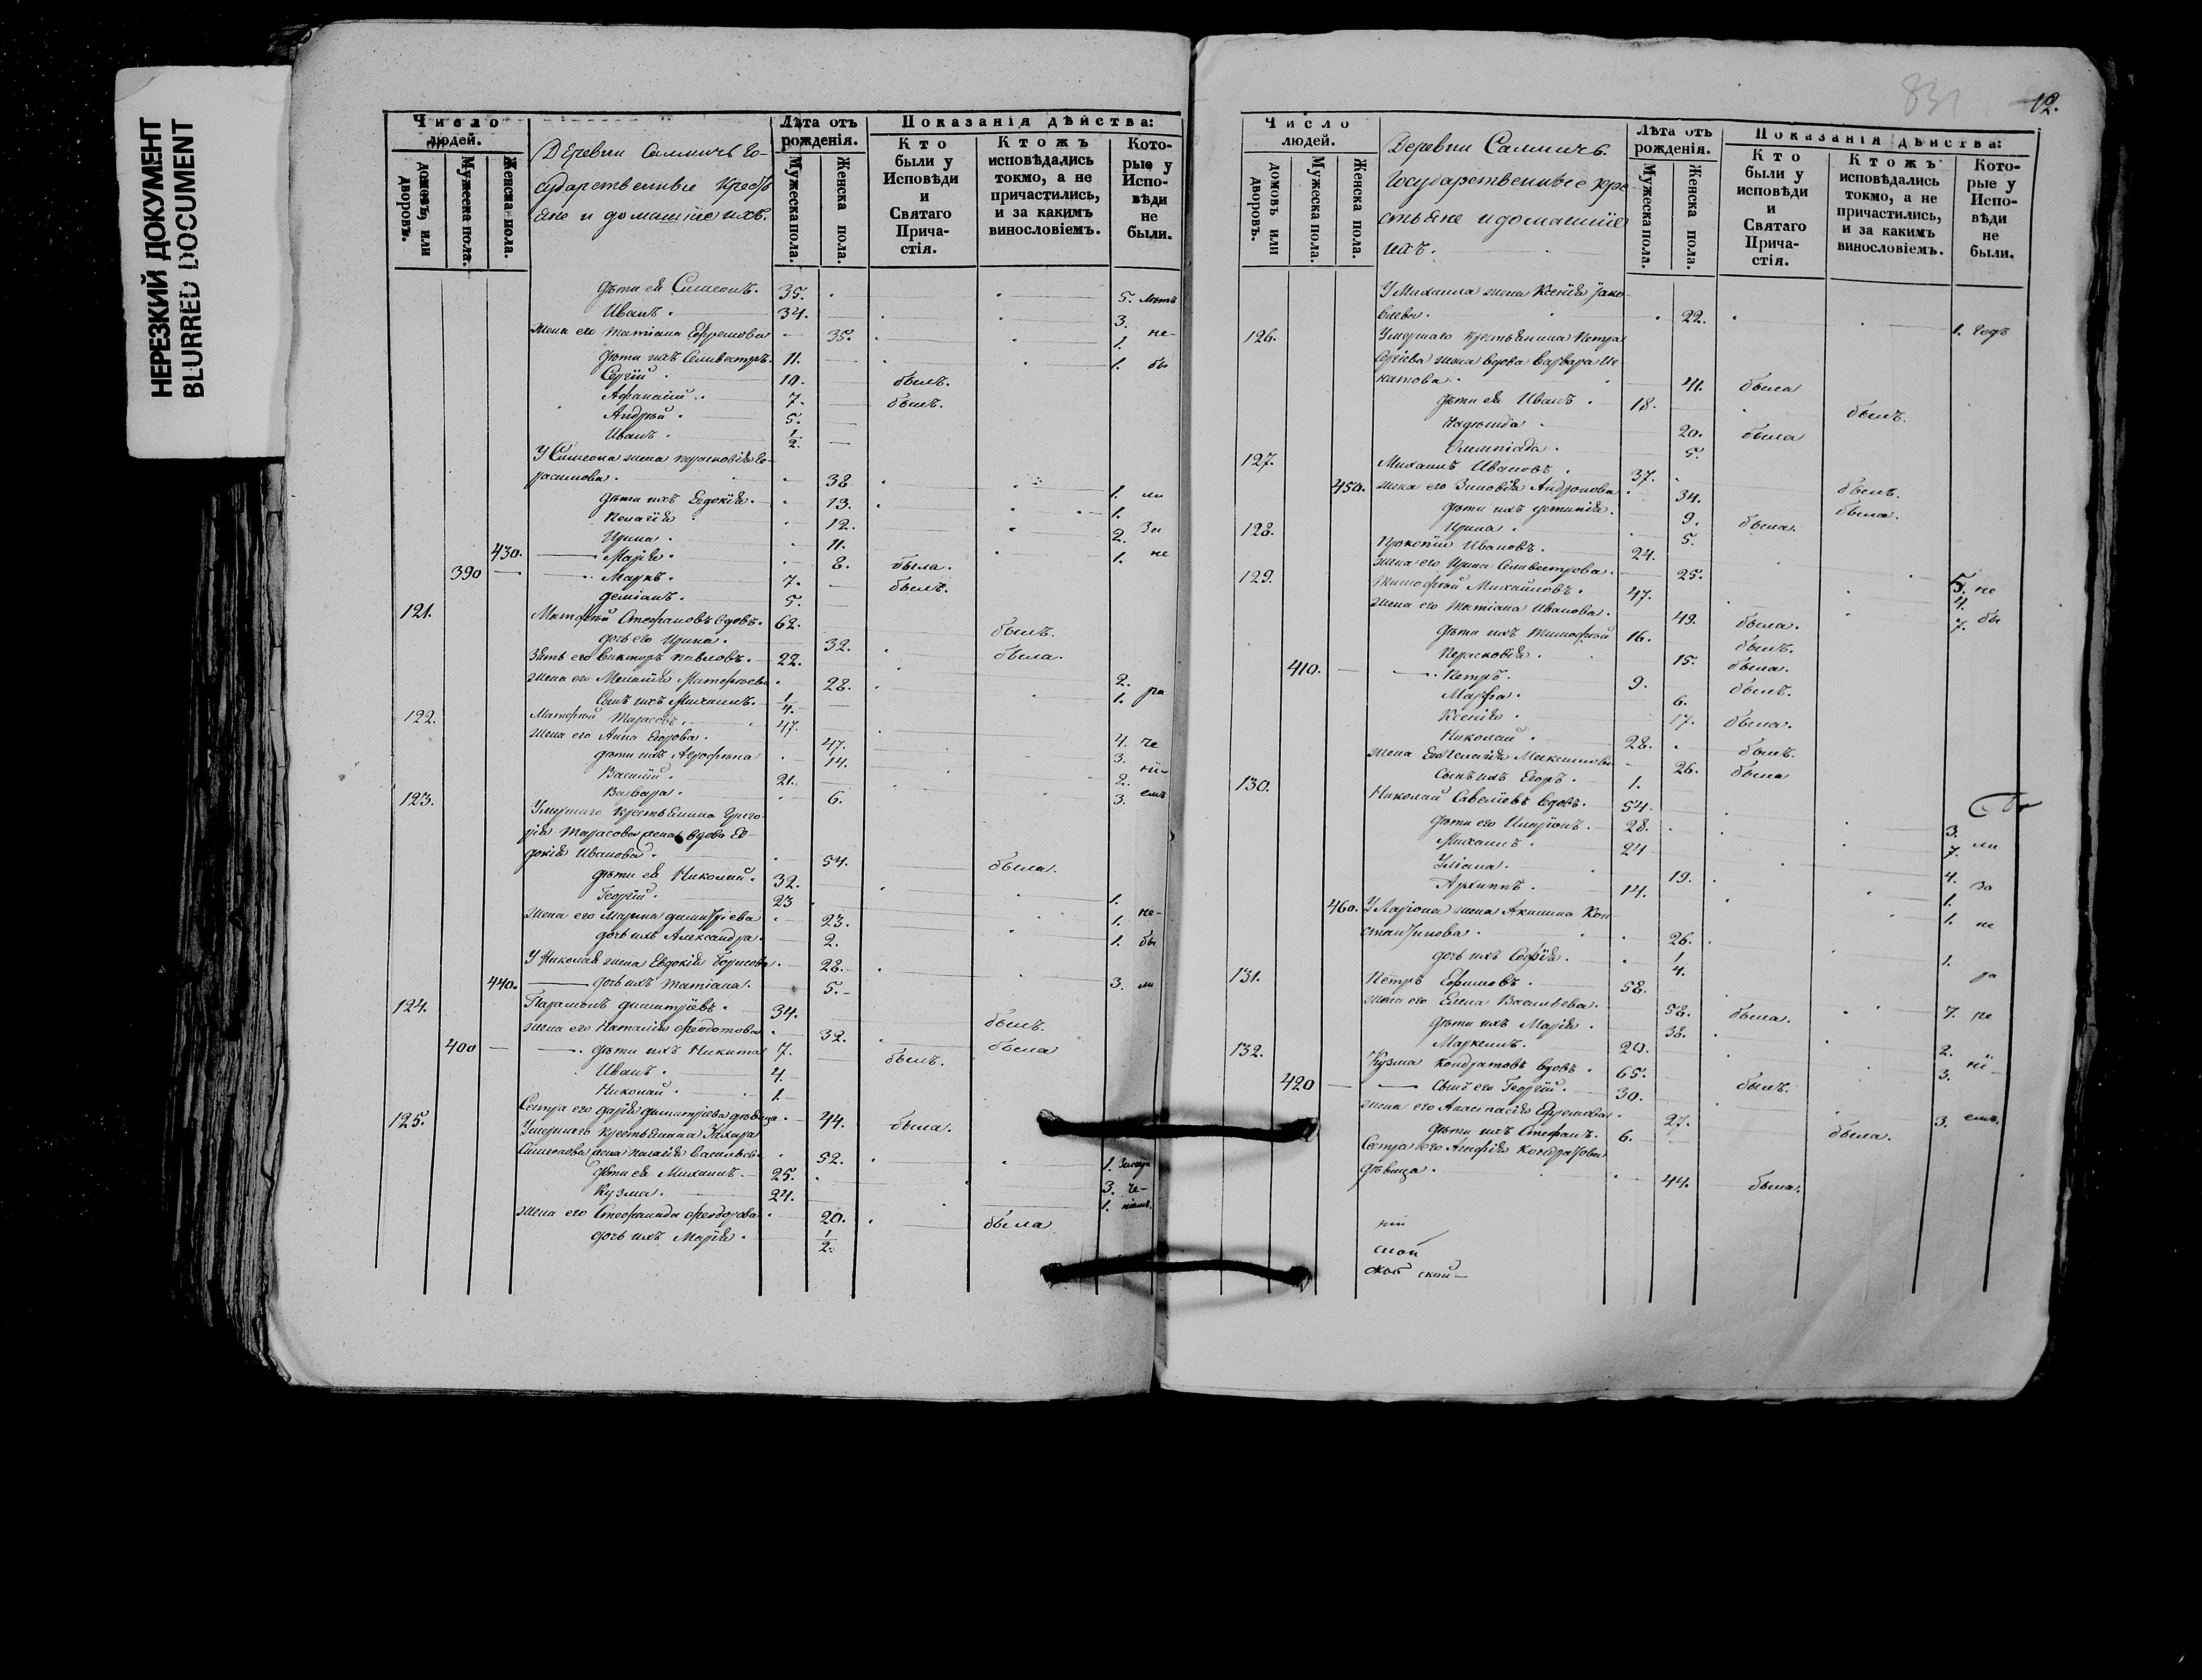 НЕРЕЗКИЙ ДОКУМЕНТ
BLURRED DOCUMENT
Число людей.
домовъ, или дворовъ.
Мужеска пола.
Женска пола.
Деревни Саммичъ Го-
сударственные Кресть
яне и домашніе ихъ.
Лѣта отъ рожденія.
Мужеска пола.
Женска пола.
Показанія дѣйства:
Кто были у Исповѣди и Святаго Прича-стія.
Ктожъ исповѣдались токмо, а не причастились, и за какимъ винословіемъ.
Кото-рые у Испо-вѣди не были.
дѣти ея Симеонъ. 35. 5. лѣтъ
Иванъ. 34. 3.
жена его Татіана Ефремова 35. 1. не-
дѣти ихъ Селивестръ. 11. 1. бы
Сергій. 10. былъ.
Афанасій. 7. былъ.
Андрей. 5.
Иванъ. 1/2.
У Симеона жена Парасковія Ге-
расимова. 38 1. ли
дѣти ихъ Евдокія. 13. 1.
Пелагія 12. 2. За
Ирина. 11. 1. не
430. Марія. 8. была.
390 Маркъ. 7. былъ.
Деміанъ. 5.
121. Матфей Стефановъ вдовъ. 62. былъ.
дочь его Ирина. 32. была.
Зять его Викторъ Павловъ. 22. 2.
жена его Меланія Матфеева 28. 1. ра
Сынъ ихъ Михаилъ. 1/4.
122. Матфей Тарасовъ. 47. 4. че
жена его Анна Егорова. 47. 3.
дѣти ихъ Агрофена 14. 2. ні-
Василій. 21. 3. емъ
Варвара. 6.
123. Умершаго крестьянина Григо-
рія Тарасова жена вдова Ев-
докія Иванова. 54. была.
дѣти ея Николай. 32. 1.
Георгій. 23 1. не-
жена его Марина Димитріева 23. 1. бы
дочь ихъ Александра. 2.
У Николая жена Евдокія Борисова. 28. 3. ли
440. дочь ихъ Татіана. 5.
124. Парамонъ Димитріевъ. 34. былъ.
жена его Наталія Феодотова 32. была
400 дѣти ихъ Никита 7. былъ.
Иванъ. 4.
Николай. 1.
Сестра его Дарія Димитріева дѣвица. 44. была.
125. Умершаго крестьянина Захара
Симеонова жена Пелагія Васильева. 52. 1.
дѣти ея Михаилъ. 25. 3. че-
Кузма. 24. 1. ніемъ.
жена его Стефанида Феодорова 20. была
дочь ихъ Марія. 1/2.
831
12.
Число людей.
домовъ или дворовъ.
Мужеска пола.
Женска пола.
Деревни Саммичъ.
Государственные кре
стьяне и домашніе
ихъ.
Лѣта отъ рожденія.
Мужеска пола.
Женска пола.
Показанія дѣйства:
Кто были у исповѣди и Святаго Прича-стія.
Ктожъ исповѣдались токмо, а не причастились, и за какимъ винословіемъ.
Кото-рые у Испо-вѣди не были.
У Михаила жена Ксенія Яко-
влева. 22. 1. годъ
126. Умершаго крестьянина Петра
жена вдова Варвара Иг-
натова. 41. была
дѣти ея Иванъ. 18. былъ.
Надежда 20. была
Олимпіада. 5.
127. Михаилъ Ивановъ. 37. былъ.
450. жена его Зиновія Андронова 34. была.
дѣти ихъ Фотинія. 9. была.
Ирина. 5.
128. Прокопій Ивановъ. 24. 5. не
жена его Ирина Селивестрова. 25. 4.
129. Тимофей Михаиловъ. 47. 7. бы
жена его Татіана Иванова. 49. была.
дѣти ихъ Тимофей 16. былъ.
Парасковія. 15. была.
410. Петръ. 9. былъ.
Марфа. 6.
Ксенія. 17. была.
Николай. 28. былъ.
жена его Пелагія Максимова 26. была
Сынъ ихъ Егоръ. 1.
130. Николай Савеліевъ вдовъ. 54. 3.
дѣти его Иларіонъ. 28. 7. ли
Михаилъ. 24 4.
Уліана. 19. 1. за
Архиппъ. 14. 1. не
460. У Ларіона жена Акилина Кон
стантинова. 26. 1.
дочь ихъ Софія. 1/4. ра
131. Петръ Ефимовъ. 58. 7. че
жена его Елена Васильева. 58. была.
дѣти ихъ Марія. 38. 2.
Маркелъ. 20. 3. ні-
132. Кузма Кондратовъ вдовъ. 65. былъ.
420 Сынъ его Георгій. 30. 3. емъ.
жена его Анастасія Ефремова. 27. была.
дѣти ихъ Стефанъ. 6.
Сестра его Агафія Кондратова
дѣвица. 44. была.